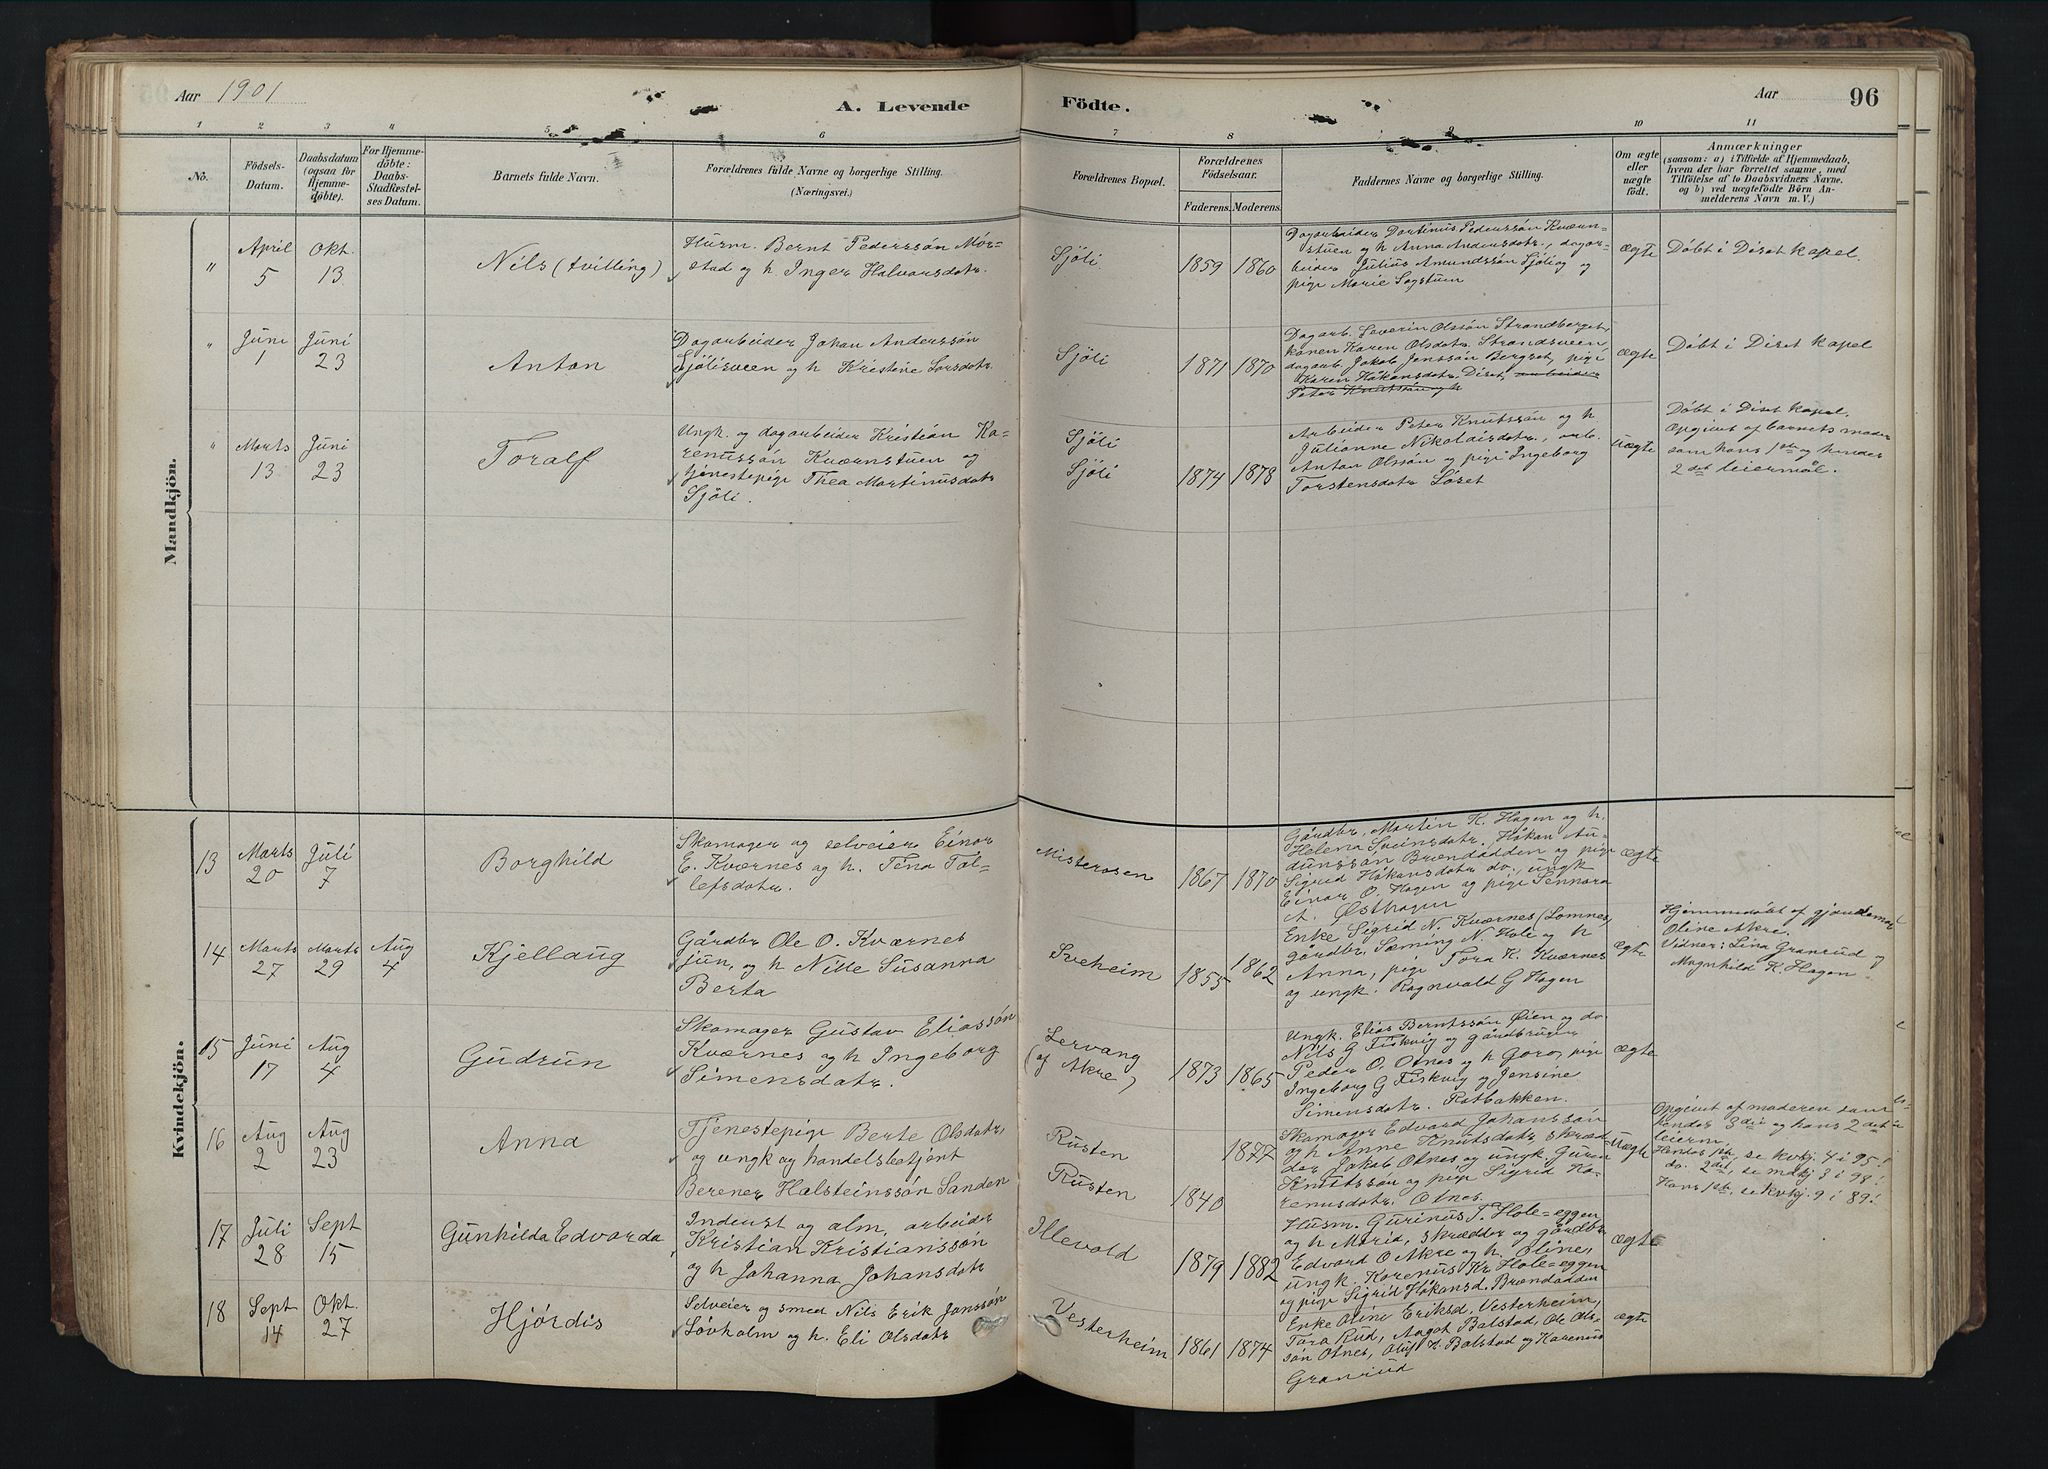 Aar 1901
A. Levende
Födte.
Aar
96
1 2 3 4 5 6 7 8 9 10 11
No.
Födsels-
Datum.
Daabsdatum
(ogsaa for
Hjemme-
döbte).
For Hjemme-
döbte:
Daabs-
Stadfæstel-
ses Datum.
Barnets fulde Navn.
Forældrenes fulde Navne og borgerlige Stilling.
(Næringsvei.)
Forældrenes Bopæl.
Forældrenes
Födselsaar.
Faderens.
Moderens.
Faddernes Navne og borgerlige Stilling.
Om ægte
eller
uægte
födt.
Anmærkninger
(saasom: a) i Tilfælde af Hjemmedaab,
hvem der har forrettet samme, med
Tilföielse af to Daabsvidners Navne,
og b) ved uægtefödte Börn An-
melderens Navn m. V.)
Mandkjön.
"
April
5
Okt.
13
Nils (tvilling)
Husm. Bernt Pederssøn Mór-
stad og h. Inger Halvorsdatr.
Sjöli.
1859
1860
Dagarbeider Dortinus Pederssøn Kværn-
stuen og h Anna Andersdatr., dagar-
beider Julius Amundssøn Sjölie og
pige Marie Sagstuen
ægte
Döbt i Diset kapel.
"
Juni
1
Juni
23
Anton
Dagarbeider Johan Anderssøn
Sjölisveen og h Kristine Larsdatr.
Sjöli
1871
1870
Dagarb. Severin Olssøn Strandberget,
konen Karen Olsdatr. Strandsveen,
dagarb. Jakob Jenssøn Bergset, pige
Karen Håkonsdatr. Diset, arbeider
Peter Knutssøn og h
ægte
Döbt i Diset kapel
"
Marts
13
Juni
23
Toralf
Ungk. og dagarbeider Kristian Ka-
renussøn Kværnstuen og
tjenestepige Thea Martinusdatr
Sjöli.
Sjöli
Sjöli
1874
1878
Arbeider Peter Knutssøn og h
Julianne Nikolaisdatr., arb.
Anton Olssøn og pige Ingeborg
Torstensdatr Löset
uægte
Döbt i Diset kapel.
Opgivet af barnets moder
som hans 1ste og hendes
2det leiermål.
Kvindekjön.
13
Marts
20
Juli
7
Borghild
Skomager og selveier Einar
E. Kværnes og h. Tina Tol-
lefsdatr.
Misterosen
1867
1870
Gårdbr. Martin K. Hagen og h.
Helena Sveinsdatr., Håkan Au-
dunssøn Brændodden og pige
Sigrid Håkansdatr do., ungk
Einar O. Hagen og pige Sennora
A. Østhagen
ægte
14
Marts
27
Marts
29
Aug
4
Kjellaug
Gårdbr Ole O. Kværnes
jun, og h Nille Susanna
Berta
Sveheim
1855
1862
Enke Sigrid N. Kværnes (Lomnes,
gårdbr. Sæming N. Hole og h
Anna, pige Tora K. Kværnes
og ungk. Ragnvald G Hagen
ægte
Hjemmedøbt af gjordemor
Oline Akre.
Vidner: Lina Granrud og
Magnhild K. Hagen
15
Juni
17
Aug
4
Gudrun
Skomager Gustav Eliassøn
Kværnes og h Ingeborg
Simensdatr.
Lervang
(af Akre)
1873
1865
Ungk. Elias Berntssøn Øien og do.
Nils G Fiskvig og gårdbruger
Peder O. Otnes og h Goro, pige
Ingeborg G Fiskvig og Jensine
Simensdatr. Rotbakken.
ægte
16
Aug
2
Aug
23
Anna
Tjenestepige Berte Olsdatr,
og ungk og handelsbetjent
Berener Halsteinssøn Sanden
Rusten
Rusten
1877
1840
Skomager Edvard Johanssøn
og h Anne Knutsdatr, skræd
der Jakob Otnes og ungk. Guren
Knutssøn og pige Sigrid Ka-
renusdatr. Otnes.
uægte
Opgivet af moderen som
hendes 3die og hans 2det
leierm.
Hendes 1ste, se kvkj. 4 i 95!
do. 2det, se mdkj 3 i 98!
Hans 1ste, se kvkj. 9 i 89!
17
Juli
28
Sept
15
Gunhilda Edvarda
Indeust og alm. arbeider
Kristian Kristianssøn
og h Johanna Johansdatr
Illevold
1879
1882
Husm. Gurinus T. Hole=eggen
og h Marid, skrædder og gårdbr
Edvard O Akre og h. Oline,
ungk. Karenus Kr. Hole=eggen
og pige Sigrid Håkansd. Brændodden
ægte
18
Sept
14
Okt.
27
Hjørdis
Selveier og smed Nils Erik Jonssøn
Løvholm og h. Eli Olsdatr
Vesterheim
1861
1874
Enke Olini Eriksd. Vesterheim,
Tora Rud, Aagot Balstad, Ole Ols-
søn Otnes, Oluf K. Balstad og Karenus
Granrud
ægte